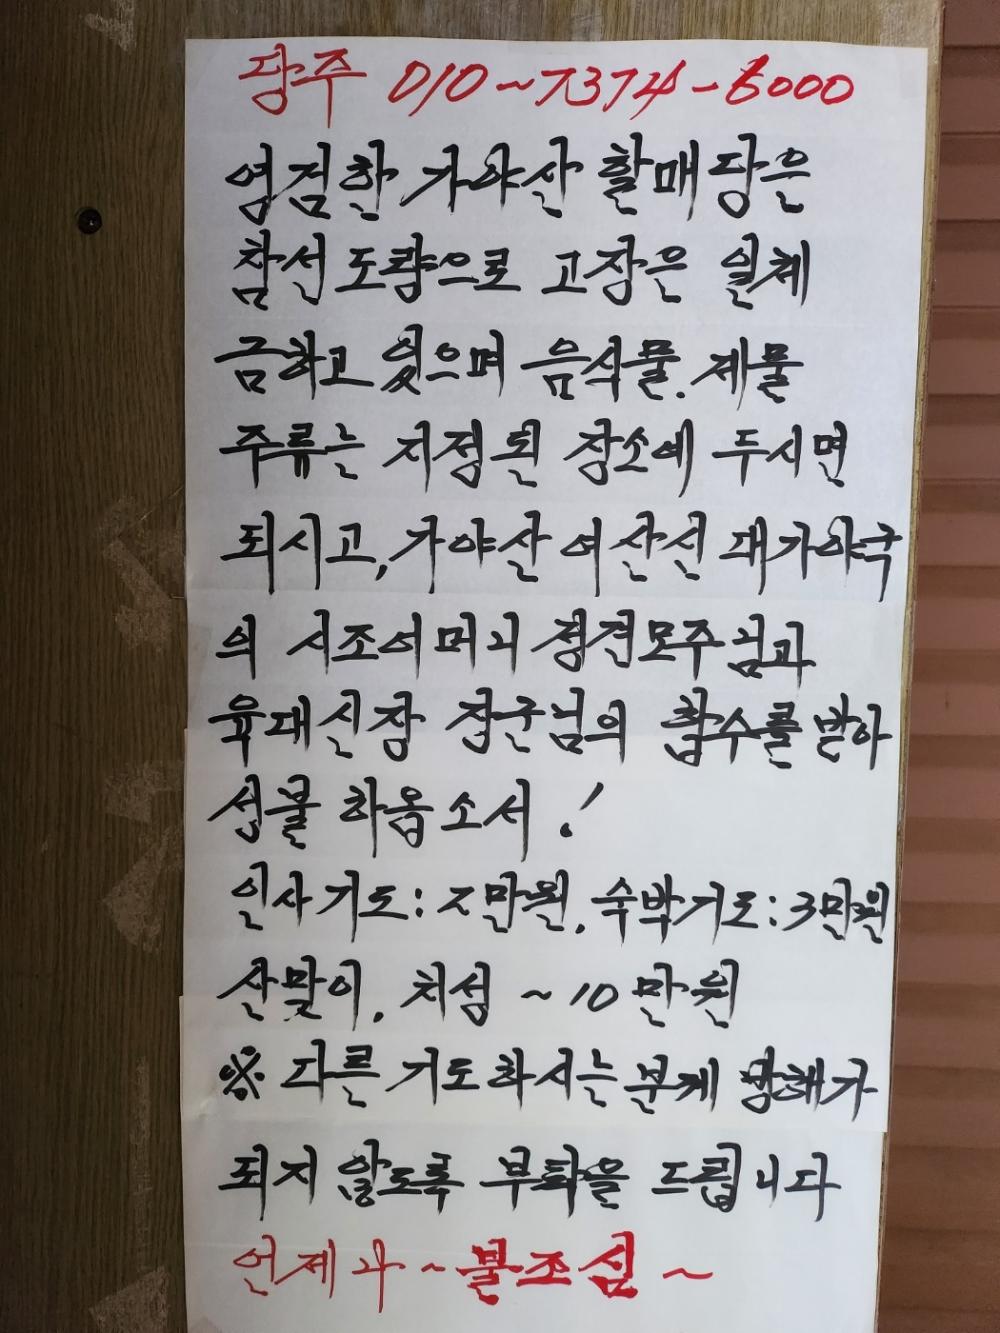 당주 010~7374-6000
영검한 가야산 할매당은
참선도량으로 고장은 일체
금하고 있으며 음식물. 제물
주류는 지정된 장소에 두시면
되시고, 가야산 여산신 대가야국
의 시조어머니 정견모주님과
육대신장 장군님의 합수를 받아
성불 하옵소서!
인사기도: 2만원. 숙박기도: 3만원
산맞이. 치성 ~10만원
※ 다른 기도하시는분께 방해가
되지 않도록 부탁을 드립니다
언제나~불조심~